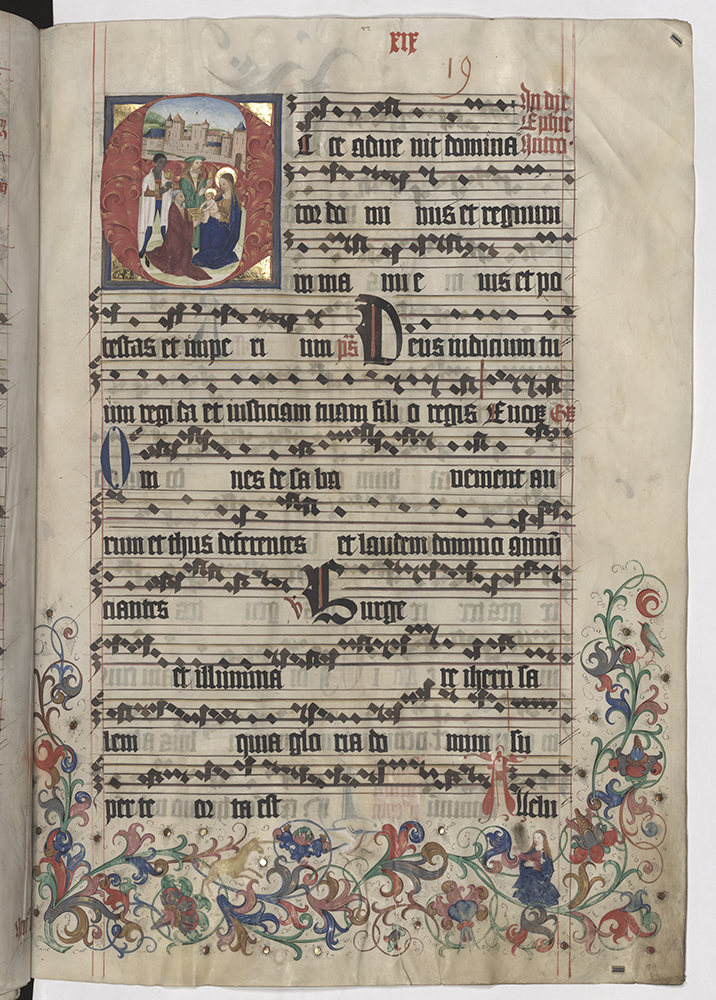 XIX
19
In die
Ephie
Intro
C ce adue nit domina
tor do mi nus et regnum
in ma nu e ius et po
testas et impe ri um ps Deus iudicium tu
um regi da et iusticiam tuam fili o regis Euor Gr
Om nes de sa ba venient au
rum et thus deferentes et laudem domino annū
ciantes v Surge
et illumina re iheru sa
lem quia glo ria do mini su
per te or ta est Allelu